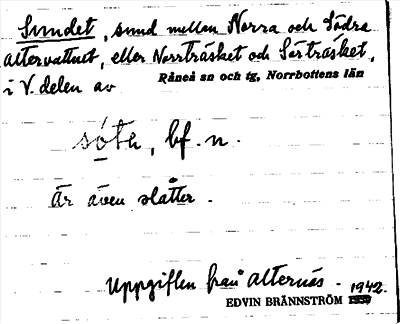 Sundet, sund mellan Norra och Södra
altervattnet, eller Norrträsket och Sörträsket,
i V. delen av Råneå sn och tg, Norrbottens län
sótə, bf. n.
Är även slåtter.
Uppgiften från Alternäs - 1942.
EDVIN BRÄNNSTRÖM